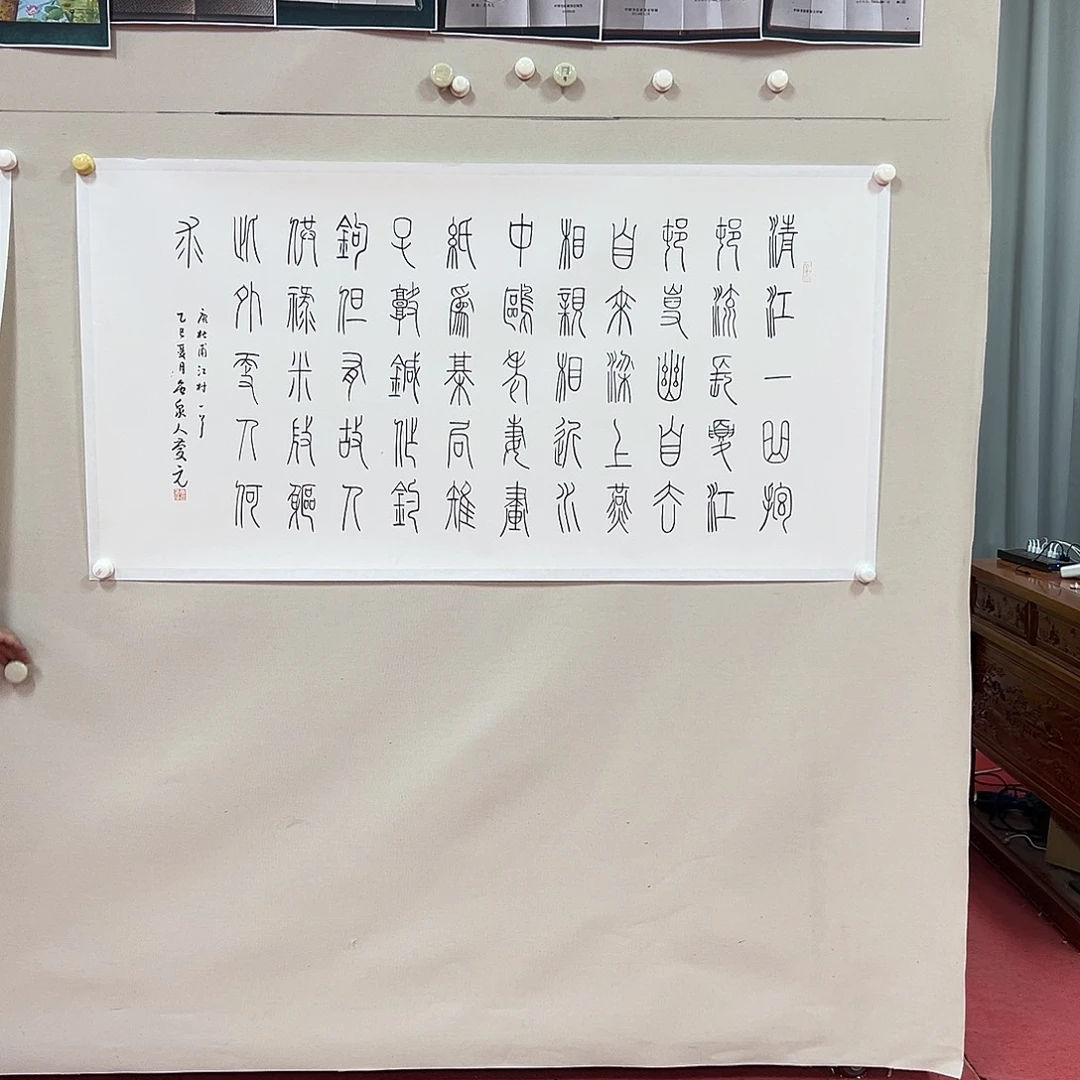 清江一曲抱
邨流長夏江
邨事幽自去
自來梁上燕
相親相近水
中鷗老妻畫
紙爲棊局稚
子敲鍼作釣
鉤但有故人
供祿米微軀
此外更人何
求
唐杜甫江村一首
乙巳夏月泉人慶元